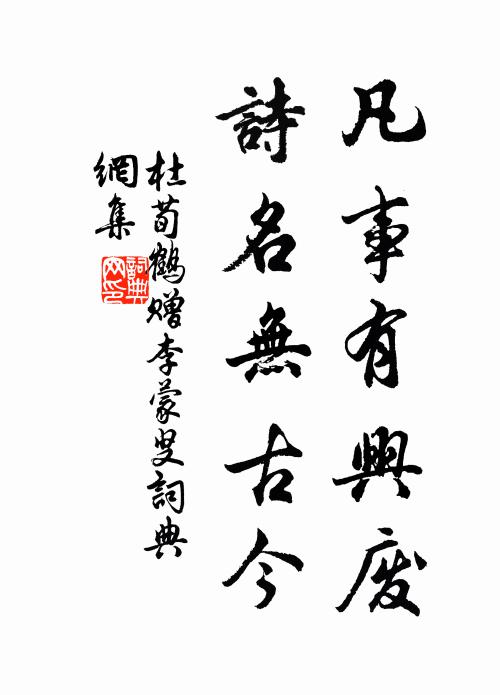 凡事有興废
詩名無古今
杜荀鶴赠李蒙叟詞典
網集
詞典
网印